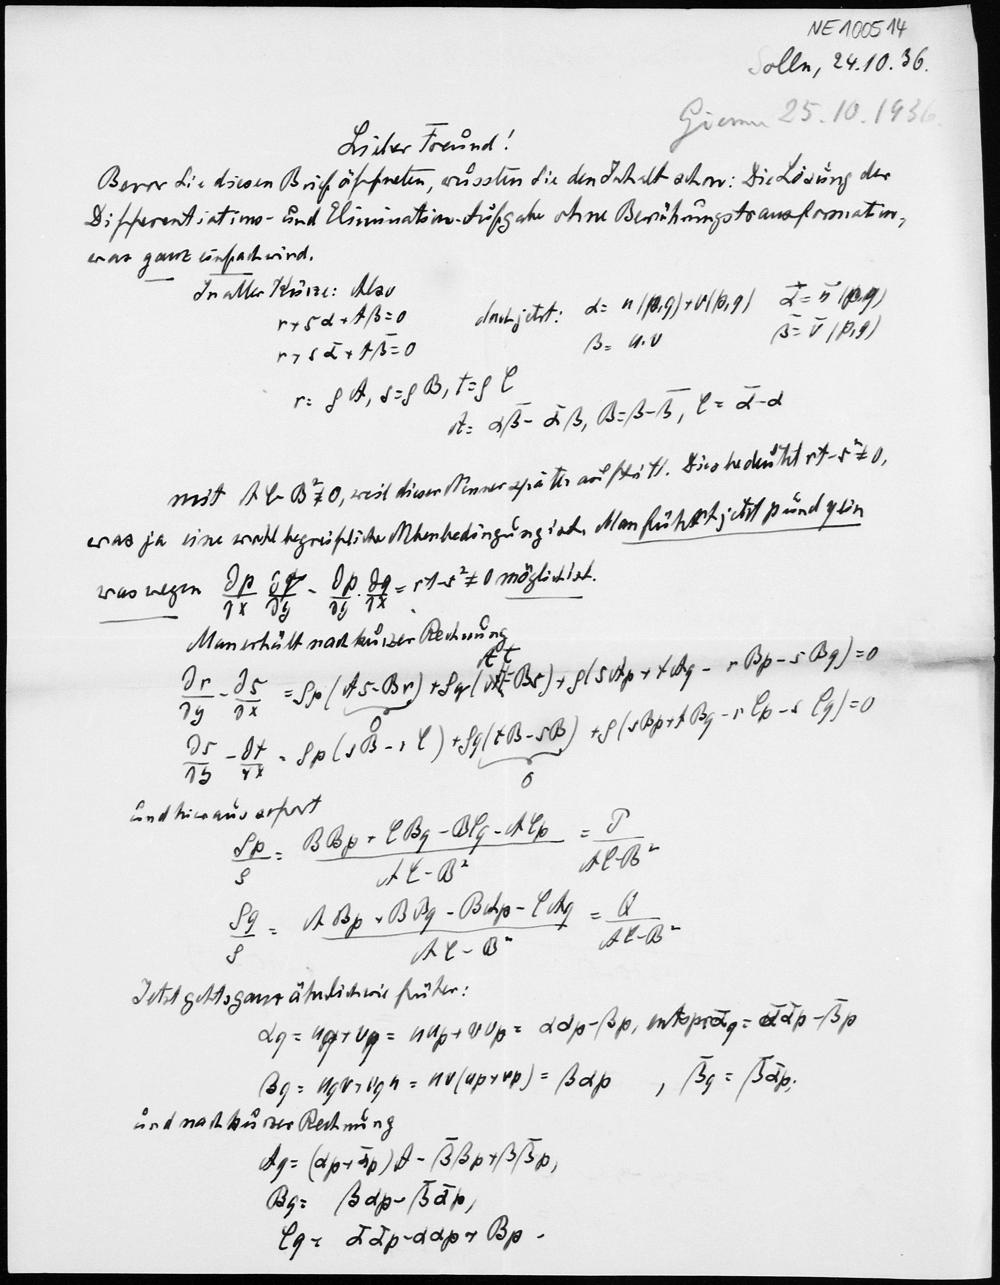 NE100514
Solln, 24.10.36.
25.10.1936.
Lieber Freund!
Bevor Sie diesen Brief öffneten, wussten Sie den Inhalt schon: Die Lösung der
Differentiations- und Elimination-Aufgabe ohne Berührungstransformation,
was ganz einfach wird.
In aller Kürze: Also
r+sα+tβ=0
r+sᾱ+tβ̄=0
doch jetzt: α= u(p,q)+v(p,q) ᾱ=ū(p,q)
β= u·v β̄=v̄(p,q)
r= ρA, s=ρB, t=ρC
A= αβ̄-ᾱβ, B=β-β̄, C= ᾱ-α
mit AC-B²≠0, weil dieser Nenner später auftritt. Dies bedeutet rt-s²≠0,
was ja eine wohl begreifliche Nebenbedingung ist. Man führt jetzt p und q ein
was wegen ∂p/∂x ∂q/∂y - ∂p/∂y · ∂q/∂x = rt-s²≠0 möglich ist.
Man erhält nach kurzer Rechnung
∂r/∂y - ∂s/∂x = ρp(As-Br)+ρq(At-Bs)+ρ(sAp+tAq-rBp-sBq)=0
0
∂s/∂y - ∂t/∂x = ρp(sB-rC)+ρq(tB-sB)+ρ(sBp+tBq-rCp-sCq)=0
0
und hieraus sofort
ρp/ρ = BBp+CBq-BCq-ACp/AC-B² = P/AC-B²
ρq/ρ = ABp+BBq-BAp-CAq/AC-B² = Q/AC-B²
Jetzt geht's ganz ähnlich wie früher:
αq=uq+vq=uup+vvp= ααp-βp, entspr ᾱq=ᾱᾱp-β̄p
βq=uqv+vqu=uv(up+vp)=βαp , β̄q=β̄ᾱp;
und nach kurzer Rechnung
Aq=(αp+ᾱp)A-β̄βp+ββ̄p,
Bq= βαp-β̄ᾱp,
Cq= ᾱᾱp-ααp+Bp.